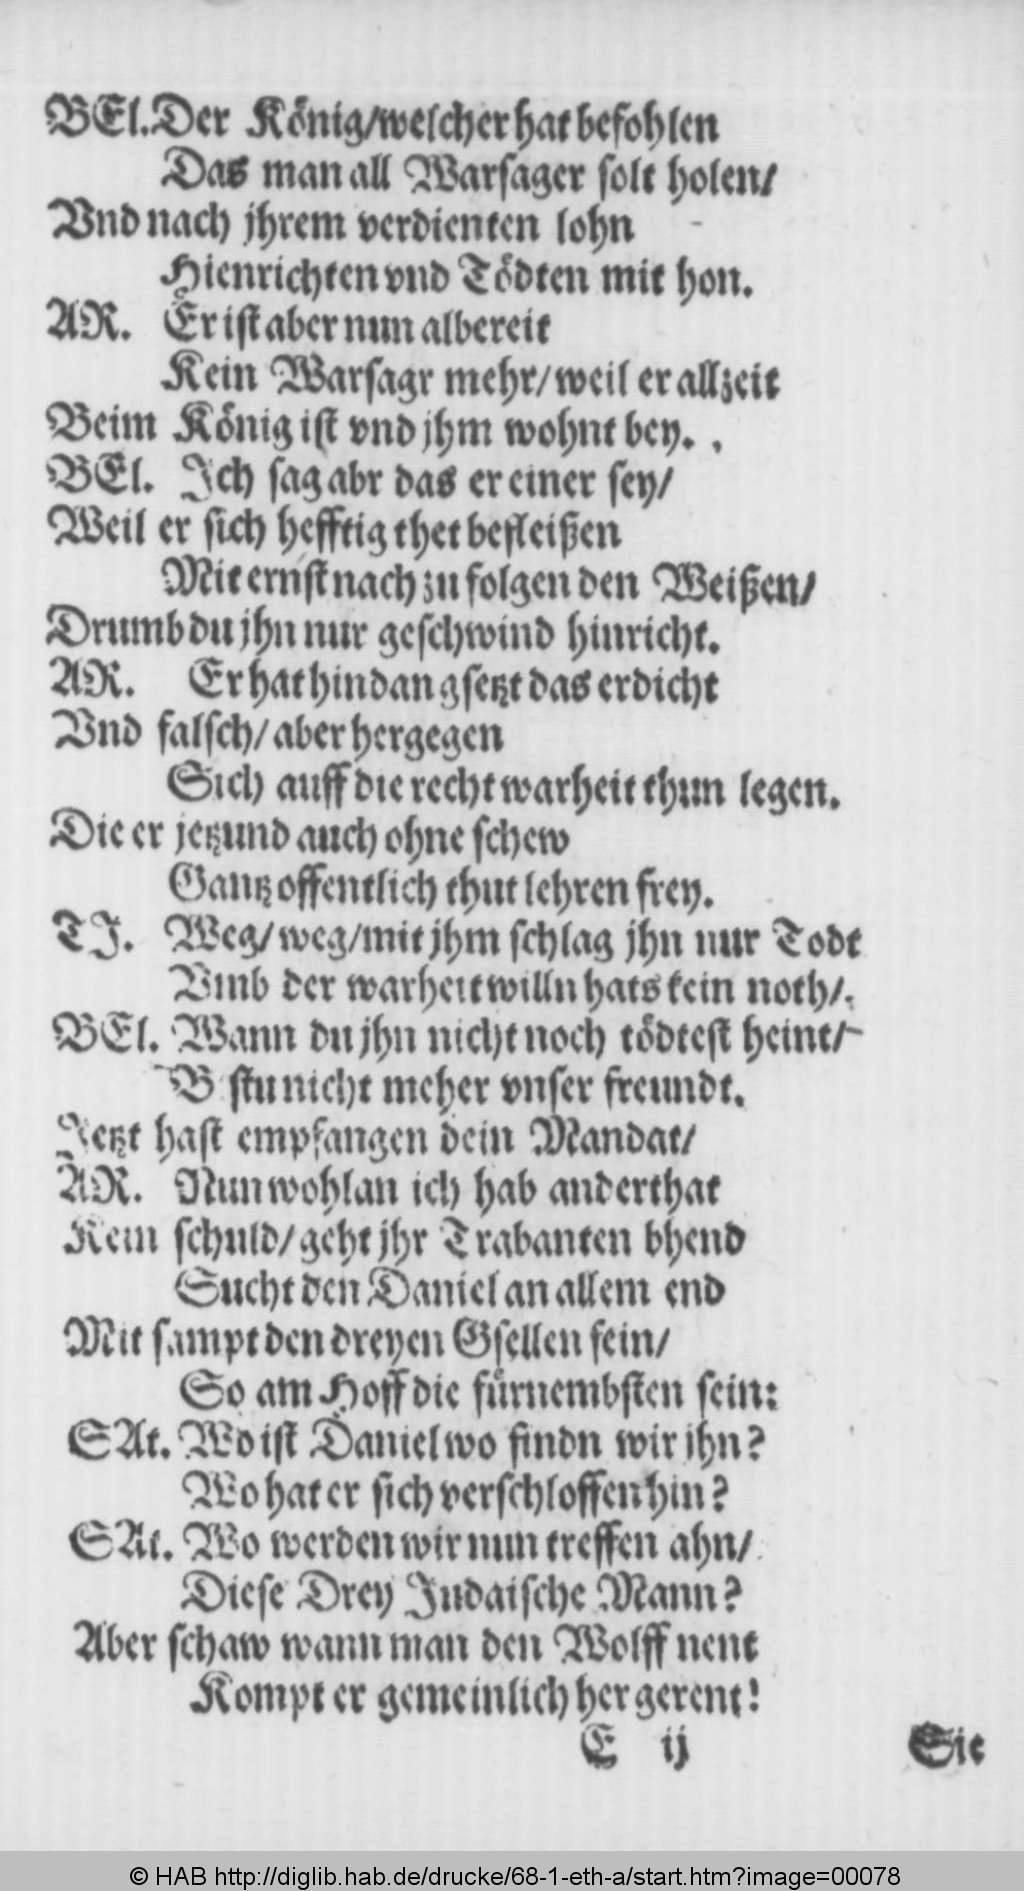 BEl. Der König/welcher hat befohlen
Das man all Warsager solt holen/
Vnd nach jhrem verdienten lohn
Hienrichten vnd Tödten mit hon.
AR. Er ist aber nun albereit
Kein Warsagr mehr/weil er allzeit
Beim König ist vnd jhm wohnt bey.
BEl. Ich sag abr das er einer sey/
Weil er sich hefftig thet befleißen
Mit ernst nach zu folgen den Weißen/
Drumb du jhn nur geschwind hinricht.
AR. Er hat hindan gsetzt das erdicht
Vnd falsch/aber hergegen
Sich auff die recht warheit thun legen.
Die er jetzund auch ohne schew
Gantz offentlich thut lehren frey.
TJ. Weg/weg/mit jhm schlag jhn nur Todt
Vmb der warheit willn hats kein noth/
BEl. Wann du jhn nicht noch tödtest heint/
B stu nicht meher vnser freundt.
Jetzt hast empfangen dein Mandat/
AR. Nun wohlan ich hab an der that
Kein schuld/geht jhr Trabanten bhend
Sucht den Daniel an allem end
Mit sampt den dreyen Gsellen fein/
So am Hoff die fürnembsten sein:
SAt. Wo ist Daniel wo findn wir jhn?
Wo hat er sich verschloffen hin?
SAt. Wo werden wir nun treffen ahn/
Diese Drey Judaische Mann?
Aber schaw wann man den Wolff nent
Kompt er gemeinlich her gerent!
E ij Sie
© HAB http://diglib.hab.de/drucke/68-1-eth-a/start.htm?image=00078